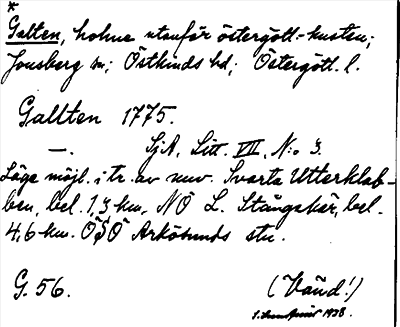 *
Galten, holme utanför östergötl.-kusten;
Jonsberg sn; Östkinds hd; Östergötl. l.
Gallten 1775.
—. SjA, Litt. VII, N:o 3.
Läge möjl. i tr. av nuv. Svarta Utterklab-
ben, bel. 1,3 km. NÖ L. Stångskär, bel.
4,6 km. ÖSÖ Arkösunds stn.
G. 56. (Vänd!)
1938.